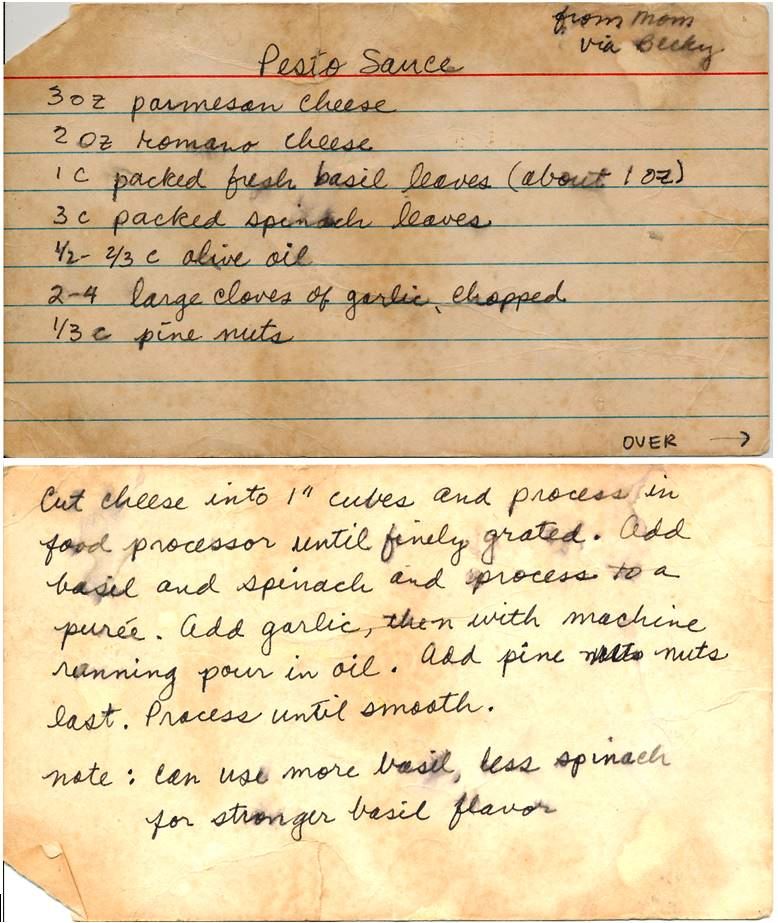 from Mom
via Becky
Pesto Sauce
3 oz parmesan cheese
2 oz romano cheese
1 c packed fresh basil leaves (about 1 oz)
3 c packed spinach leaves
1/2 - 2/3 c olive oil
2-4 large cloves of garlic, chopped
1/3 c pine nuts
OVER →
Cut cheese into 1" cubes and process in
food processor until finely grated. Add
basil and spinach and process to a
purée. Add garlic, then with machine
running pour in oil. Add pine nuts
last. Process until smooth.
note: can use more basil, less spinach
for stronger basil flavor